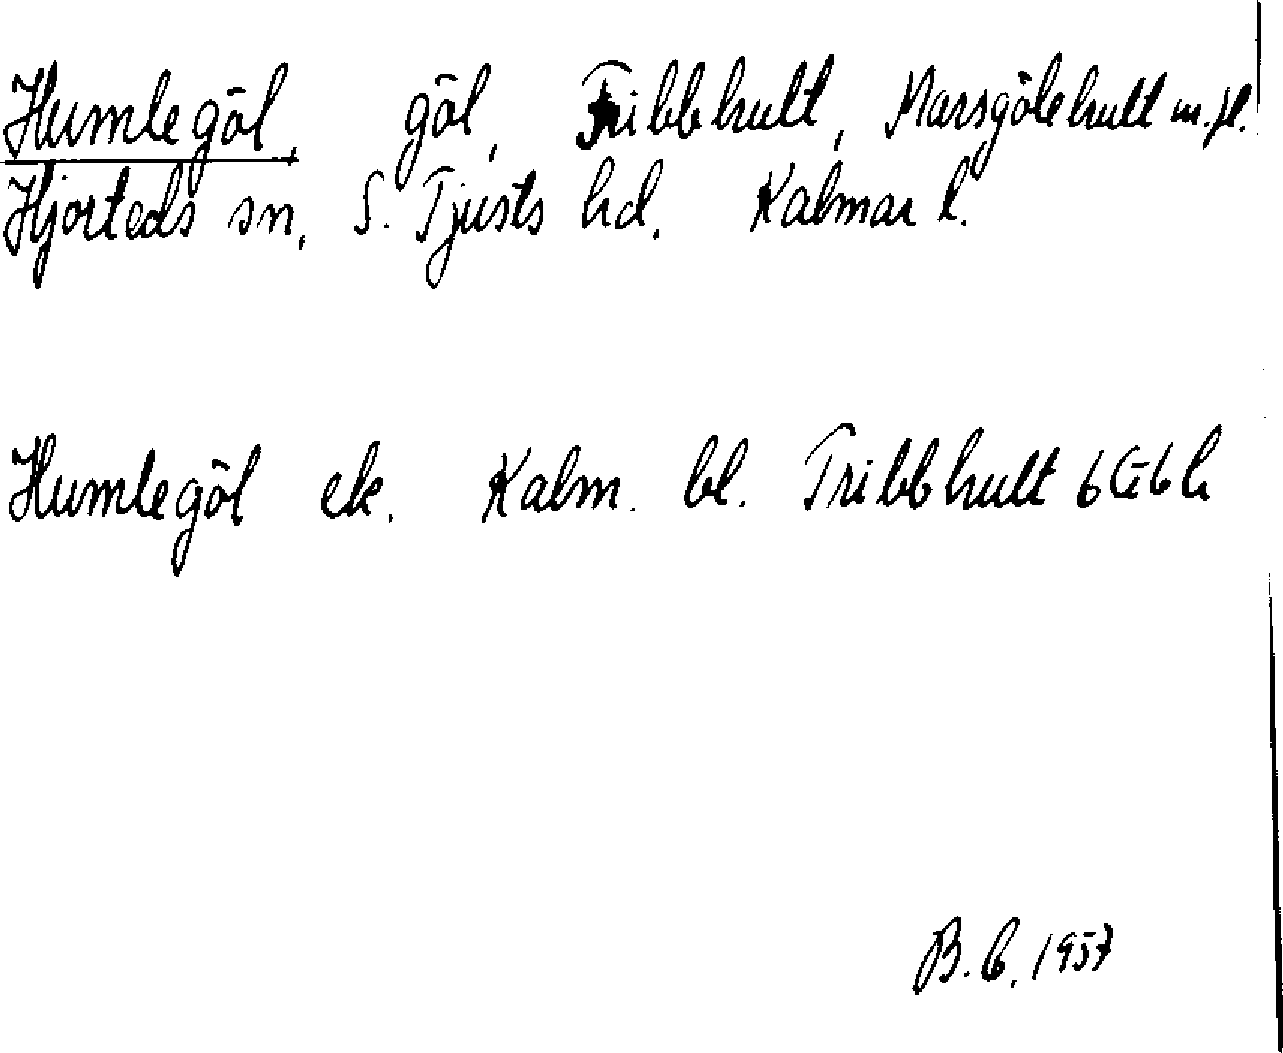 Humlegöl, göl, Tribbhult, Marsgölehult m.fl.
Hjorteds sn, S. Tjusts hd, Kalmar l.
Humlegöl ek. Kalm. bl. Tribbhult 6G6h
B.C. 1957